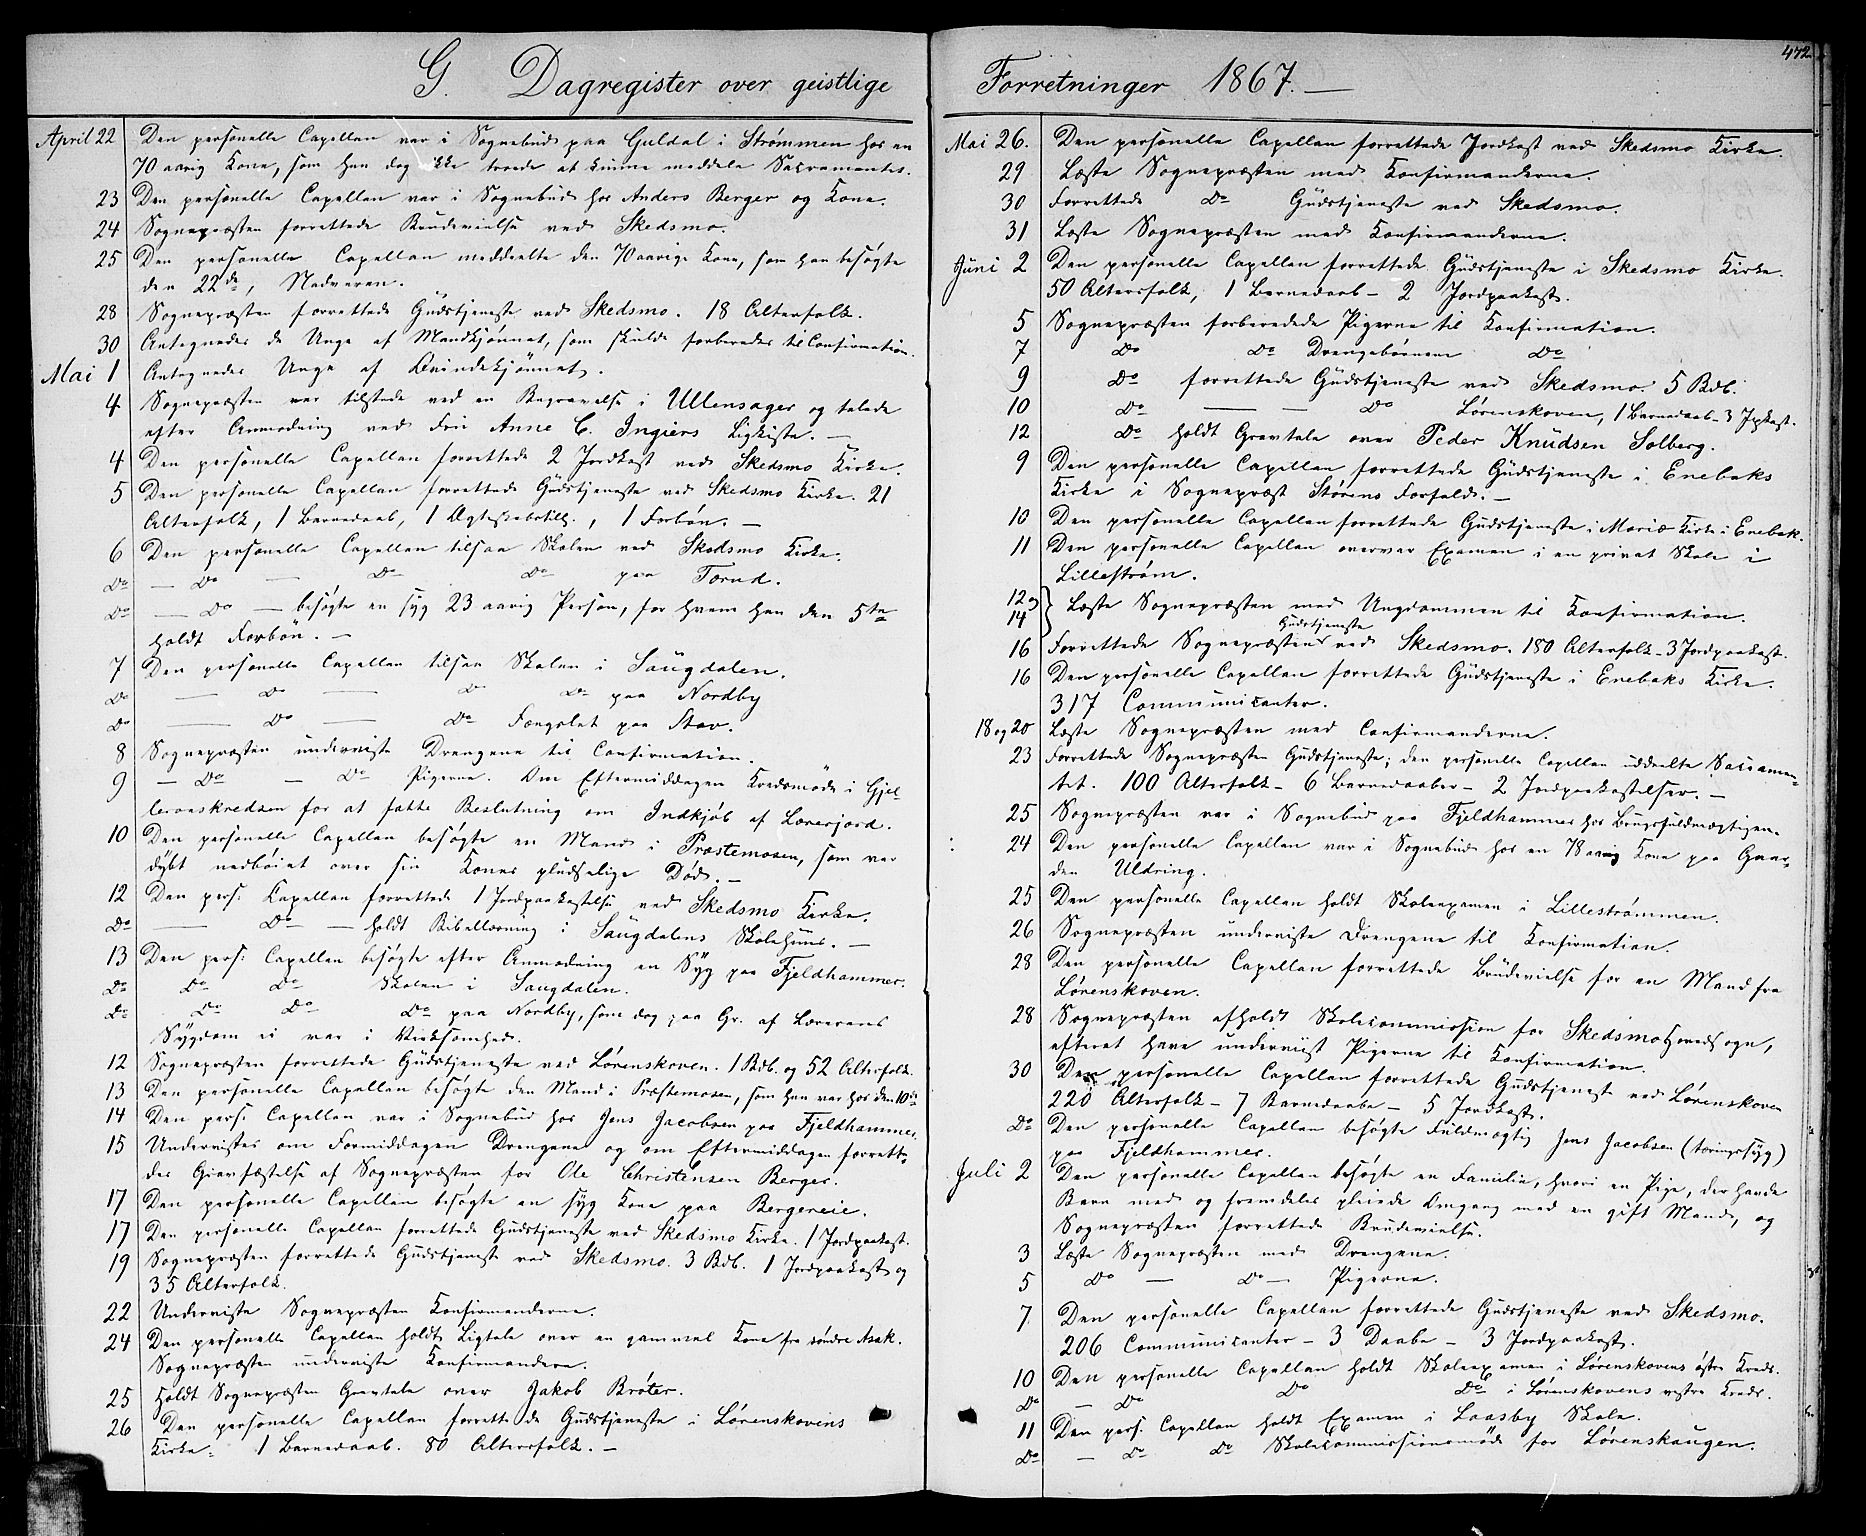 G. Dagregister over geistlige Forretninger 1867.
472
April 22 Den personelle Capellan var i Sognebud paa Guldal i Strømmen hos en
70 aarig Kone, som han dog ikke troede at kunne meddele Sacramentet.
23 Den personelle Capellan var i Sognebud hos Anders Berger og Kone.
24 Sognepræsten forrettede Brudevielse ved Skedsmo.
25 Den personelle Capellan meddeelte den 70 aarige Kone, som han besøgte
den 22de, Nadveren.
28 Sognepræsten forrettede Gudstjeneste ved Skedsmo. 18 Altersfolk.
30 Antegnedes de Unge af Mandkjønnet, som skulde forberedes til Confirmation.
Mai 1 Antegnedes Unge af Qvindekjønnet.
4 Sognepræsten var tilstede ved en Begravelse i Ullensager og talede
efter Anmodning ved Fru Anne C. Ingiers Ligkiste. —
4 Den personelle Capellan forrettede 2 Jordkast ved Skedsmo Kirke.
5 Den personelle Capellan forrettede Gudstjeneste ved Skedsmo Kirke. 21
Altersfolk, 1 Barnedaab, 1 Ægteskabstill., 1 Forbøn. —
6 Den personelle Capellan tilsaa Skolen ved Skedsmo Kirke.
Do — Do — Do Do paa Torud.
Do — Do — besøgte en syg 23 aarig Person, for hvem han den 5te
holdt Forbøn. —
7 Den personelle Capellan tilsaa Skolen i Saugdalen.
Do — Do — Do Do paa Nordby
Do — Do — Do Fængslet paa Stav.
8 Sognepræsten underviste Drengene til Confirmation.
9 — Do — Do Pigerne. Om Eftermiddagen Kredsmøde i Gjel-
leraaskredsen for at fatte Beslutning om Indkjøb af Lærerjord.
10 Den personelle Capellan besøgte en Mand i Præstemosen, som var
dybt nedbøiet over sin Kones pludselige Død. —
12 Den pers: Capellan forrettede 1 Jordpaakastelse ved Skedsmo Kirke.
Do — Do — holdt Bibellæsning i Saugdalens Skolehuus. —
13 Den pers: Capellan besøgte efter Anmodning en Syg paa Fjeldhammer.
Do Do Do Skolen i Saugdalen.
Do Do Do Do paa Nordby, som dog paa Gr. af Lærerens
Sygdom ei var i Virksomhed.
12 Sognepræsten forrettede Gudstjeneste ved Lørenskoven. 1 Bdb. og 52 Altersfolk.
13 Den personelle Capellan besøgte den Mand i Præstemosen, som han var hos den 10de
14 Den pers: Capellan var i Sognebud hos Jens Jacobsen paa Fjeldhammer.
15 Undervistes om Formiddagen Drengene og om Eftermiddagen forrette-
des Gravfæstelse af Sognepræsten for Ole Christensen Berger.
17 Den personelle Capellan besøgte en syg Kone paa Bergereie.
17 Den personelle Capellan forrettede Gudstjeneste ved Skedsmo Kirke. 1 Jordpaakast.
19 Sognepræsten forrettede Gudstjenest ved Skedsmo. 3 Bdb. 1 Jordpaakast og
35 Altersfolk.
22 Underviste Sognepræsten Konfirmanderne.
24 Den personelle Capellan holdt Ligtale over en gammel Kone fra søndre Asak.
Sognepræsten underviste Konfirmandene.
25 Holdt Sognepræsten Gravtale over Jakob Brøter.
26 Den personelle Capellan forrettede Gudstjeneste i Lørenskovens
Kirke. 1 Barnedaab. 80 Altersfolk. —
Mai 26. Den personelle Capellan forrettede Jordkast ved Skedsmo Kirke.
29 Læste Sognepræsten med Konfirmanderne.
30 Forrettede Do Gudstjeneste ved Skedsmo.
31 Læste Sognepræsten med Konfirmanderne.
Juni 2 Den personelle Capellan forrettede Gudstjeneste i Skedsmo Kirke.
50 Altersfolk, 1 Barnedaab — 2 Jordpaakast.
5 Sognepræsten forberedede Pigerne til Konfirmation.
7 Do Do Drengebørnene Do
9 Do forrettede Gudstjeneste ved Skedsmo. 5 Bdb.
10 Do — — Do Lørenskoven, 1 Barnedaab — 3 Jpkast.
12 Do holdt Gravtale over Peder Knudsen Solberg.
9 Den personelle Capellan forrettede Gudstjeneste i Enebaks
Kirke i Sognepræst Størens Forfald. —
10 Den personelle Capellan forrettede Gudstjeneste i Mariæ Kirke i Enebak.
11 Den personelle Capellan overvar Examen i en privat Skole i
Lillestrøm.
12 og 14 } Læste Sognepræsten med Ungdommen til Konfirmation.
16 Forrettede Sognepræsten Gudstjeneste ved Skedsmo. 180 Altersfolk — 3 Jordpaakast.
16 Den personelle Capellan forrettede Gudstjeneste i Enebaks Kirke.
317 Communicanter.
18 og 20 Læste Sognepræsten med Confirmanderne.
23 Forrettede Sognepræsten Gudstjeneste; den personelle Capellan uddeelte Sacramen-
tet. 100 Altersfolk — 6 Barnedaaber — 2 Jordpaakastelser. —
25 Sognepræsten var i Sognebud paa Fjeldhammer hos Brugsfuldmægtigen.
24 Den personelle Capellan var i Sognebud hos en 78 aarig Kone paa Gaar-
den Uldring.
25 Den personelle Capellan holdt Skoleexamen i Lillestrømmen.
26 Sognepræsten underviste Drengene til Konfirmation.
28 Den personelle Capellan forrettede Brudevielse for en Mand fra
Lørenskoven.
28 Sognepræsten afholdt Skolecommission for Skedsmo Hovedsogn,
efteret have underviist Pigerne til Konfirmation.
30 Den personelle Capellan forrettede Gudstjenest ved Lørenskoven
220 Altersfolk — 7 Barnedaabe — 5 Jordkast.
Do Den personelle Capellan besøgte Fuldmægtig Jens Jacobsen (tæringssyg)
paa Fjeldhammer.
Juli 2 Den personelle Capellan besøgte en Familie, hvori en Pige, der havde
Barn med og fremdeles pleiede Omgang med en gift Mand, og
Sognepræsten forrettede Brudevielse.
3 Læste Sognepræsten med Drengene.
5 Do — Do — Pigerne.
7 Den personelle Capellan forrettede Gudstjeneste ved Skedsmo.
206 Communicanter — 3 Daabe — 3 Jordpaakast.
10 Den personelle Capellan holdt Skoleexamen i Lørenskovens østre Kreds.
Do — Do Do Do i Lørenskovens vestre Kreds.
11 Den pers: Capellan holdt Examen i Laasby Skole.
Do — Do Do Skolecommissionsmøde for Lørenskaugen.